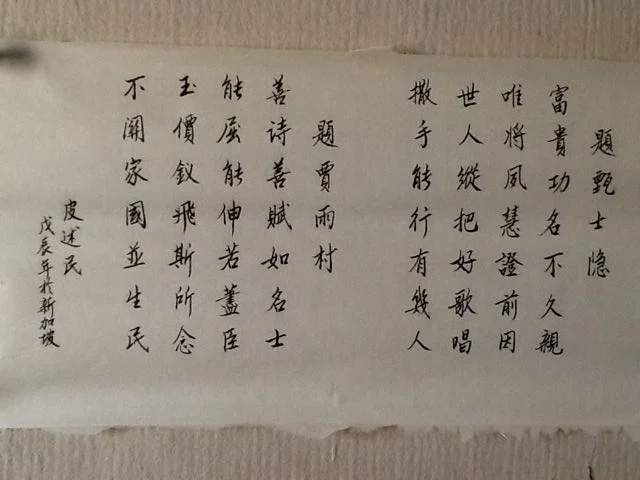 題甄士隐
富貴功名不久親
唯將夙慧證前因
世人縱把好歌唱
撒手能行有幾人
題賈雨村
善诗善賦如名士
能屈能伸若藎臣
玉價釵飛斯所念
不開家國並生民
皮述民
戊辰年於新加坡